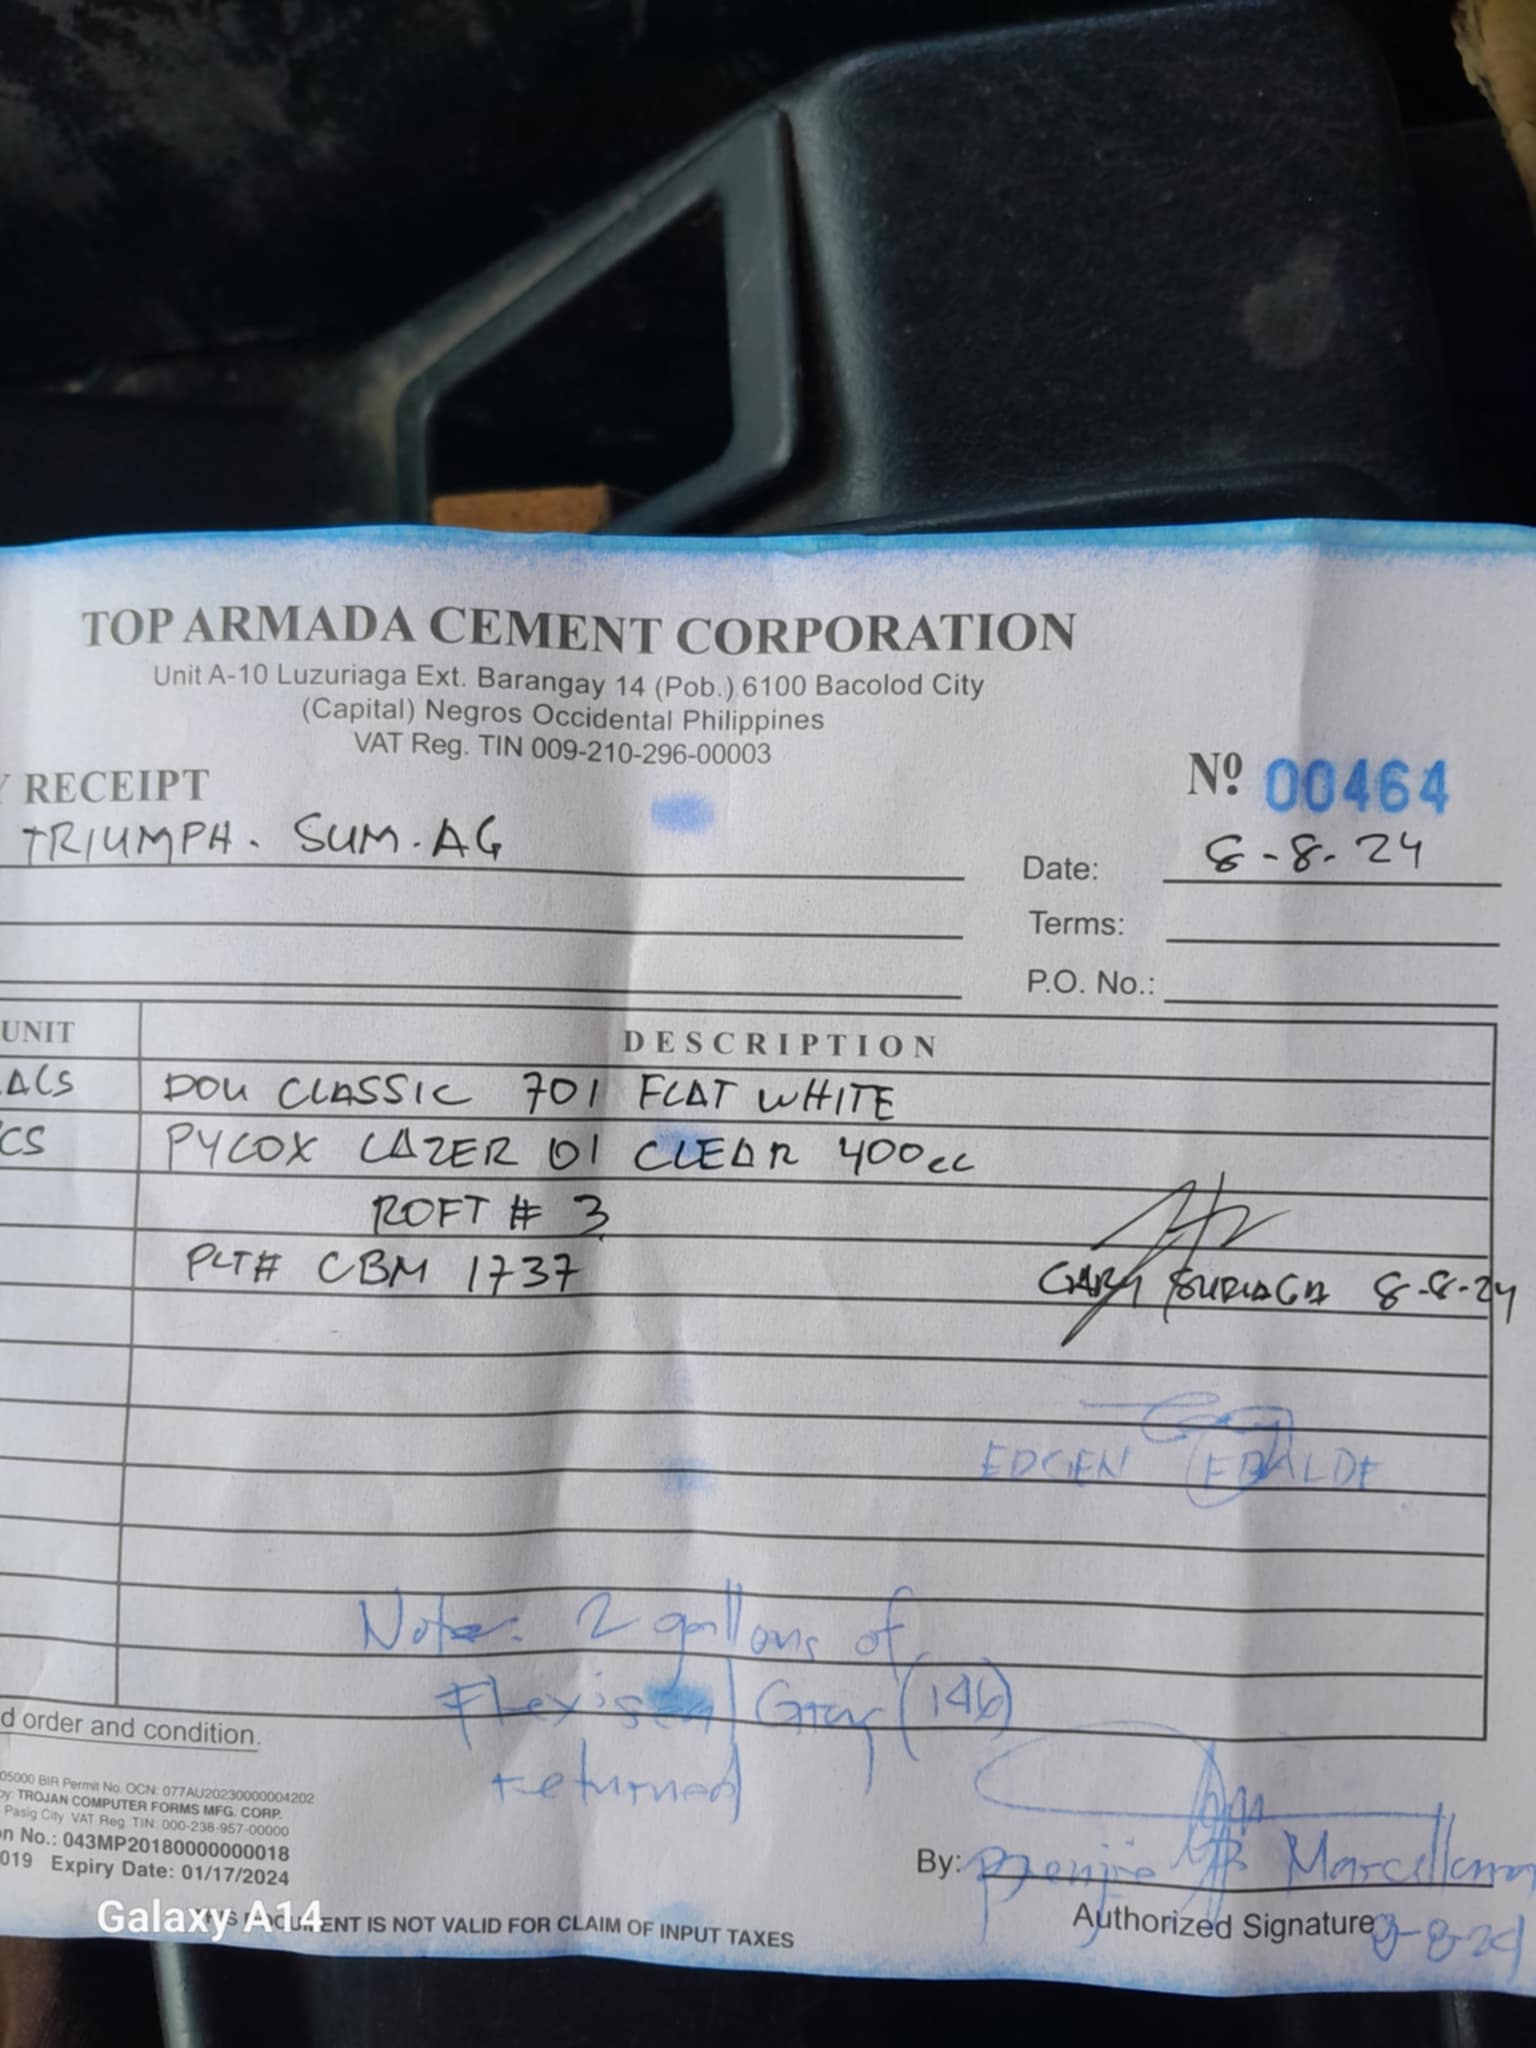 TOP ARMADA CEMENT CORPORATION
Unit A-10 Luzuriaga Ext. Barangay 14 (Pob.) 6100 Bacolod City
(Capital) Negros Occidental Philippines
VAT Reg. TIN 009-210-296-00003
Y RECEIPT
Nº 00464
TRIUMPH. SUM. AG
Date: 8-8-24
Terms:
P.O. No.:
UNIT DESCRIPTION
ALS DOU CLASSIC 701 FLAT WHITE
CS PYLOX LAZER 01 CLEAR 400cc
ROFT # 3
PLT# CBM 1737
GARY SURIAGA 8-8-24
EDGEN
Note: 2 gallons of
Flexiseal Gray (146)
returned
d order and condition.
05000 BIR Permit No. OCN: 077AU20230000004202
by: TROJAN COMPUTER FORMS MFG. CORP.
Pasig City VAT Reg. TIN: 000-238-957-00000
on No.: 043MP20180000000018
019 Expiry Date: 01/17/2024
By:
Authorized Signature
8-8-24
THIS DOCUMENT IS NOT VALID FOR CLAIM OF INPUT TAXES
Galaxy A14